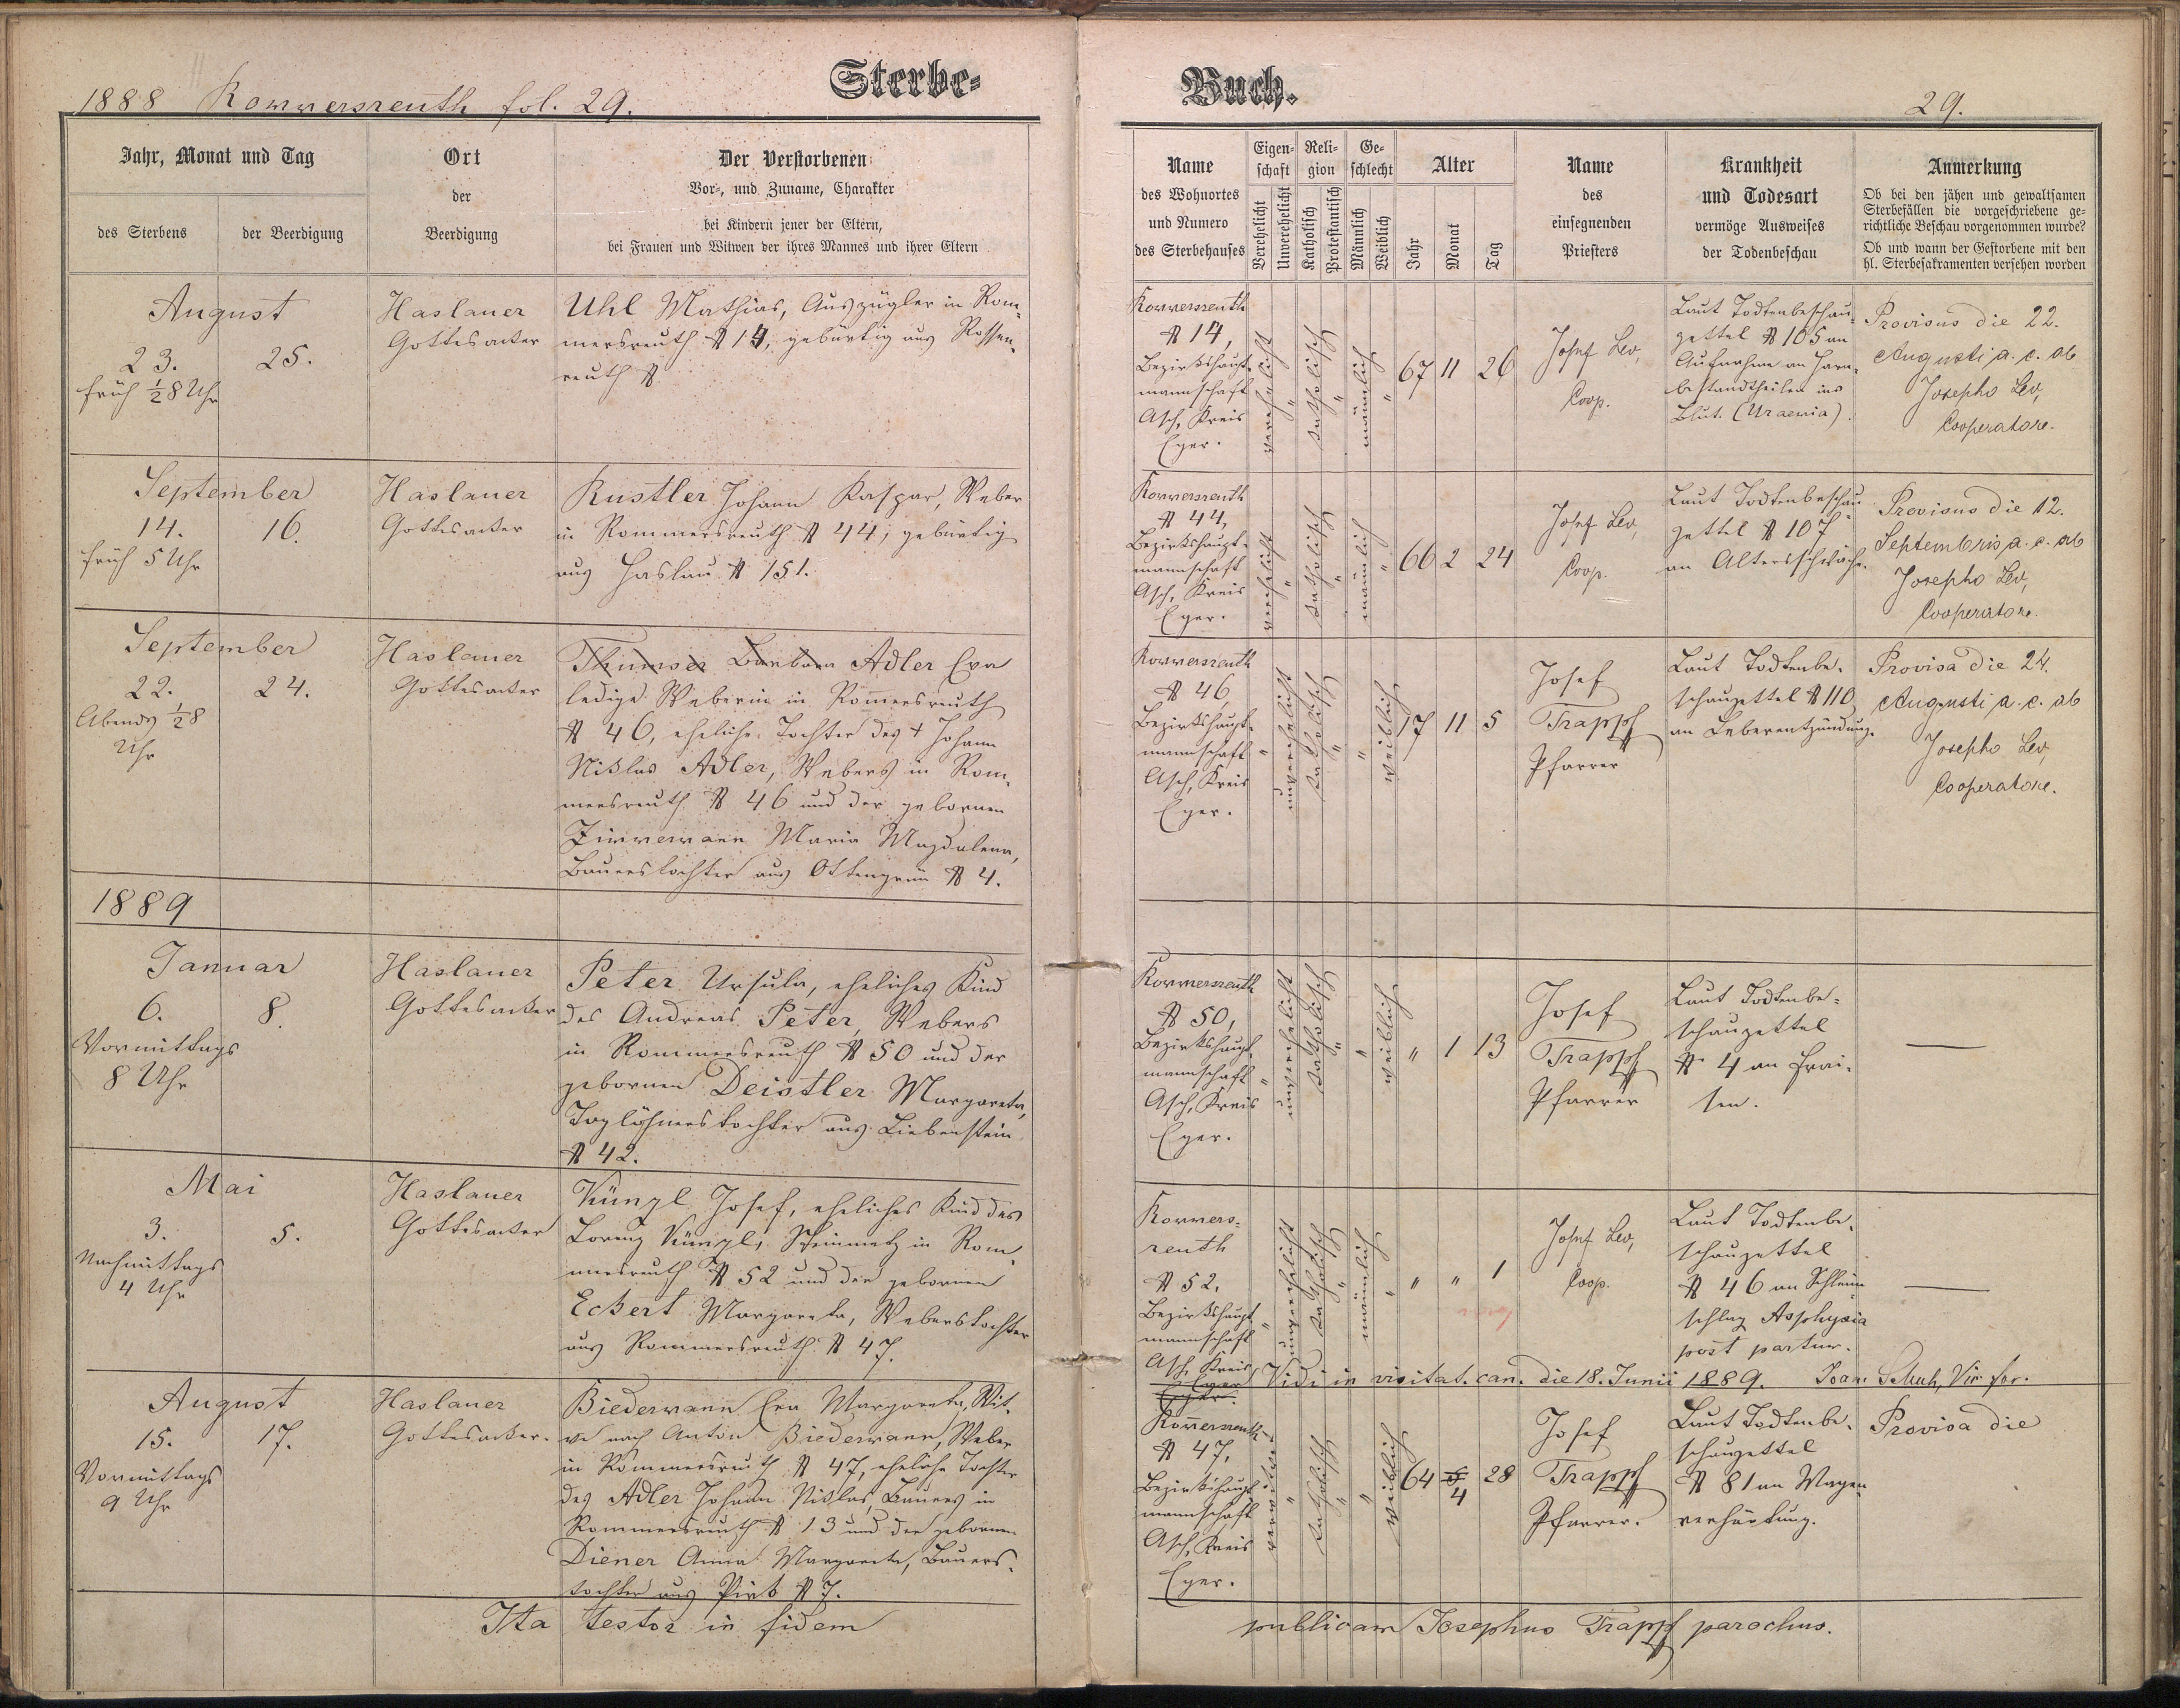 Sterbe-
Buch.
1888 Rommersreuth fol. 29.
29.
Jahr, Monat und Tag
des Sterbens
der Beerdigung
Ort
der
Beerdigung
Der Verstorbenen
Vor-, und Zuname, Charakter
bei Kindern jener der Eltern,
bei Frauen und Witwen der ihres Mannes und ihrer Eltern
Name
des Wohnortes
und Numero
des Sterbehauses
Eigen-
schaft
Verehelicht
Unverehelicht
Reli-
gion
Katholisch
Protestantisch
Ge-
schlecht
Männlich
Weiblich
Alter
Jahr
Monat
Tag
Name
des
einsegnenden
Priesters
Krankheit
und Todesart
vermöge Ausweises
der Todenbeschau
Anmerkung
Ob bei den jähen und gewaltsamen
Sterbefällen die vorgeschriebene ge-
richtliche Beschau vorgenommen wurde?
Ob und wann der Gestorbene mit den
hl. Sterbesakramenten versehen worden
August
23.
25.
früh ½8 Uhr
Haslauer
Gottesacker
Uhl Mathias, Auszügler in Rom-
mersreuth № 14, gebürtig aus Rossen-
reuth №
Rommersreuth
№ 14,
Bezirkshaupt-
mannschaft
Asch, Kreis
Eger.
verehelicht
"
katholisch
"
männlich
"
67 11 26
Josef Lev,
Coop.
Laut Todtenbeschau-
zettel № 105 an
Aufnahme an Harn-
bestandtheilen ins
Blut. (Uraemia).
Provisus die 22.
Augusti a. c. ab
Josepho Lev,
Cooperatore.
September
14.
16.
früh 5 Uhr
Haslauer
Gottesacker
Rustler Johann Kaspar, Weber
in Rommersreuth № 44, gebürtig
aus Haslau № 151.
Rommersreuth
№ 44,
Bezirkshaupt-
mannschaft
Asch, Kreis
Eger.
verehelicht
"
katholisch
"
männlich
"
66 2 24
Josef Lev,
Coop.
Laut Todtenbeschau
zettel № 107
an Altersschwäche.
Provisus die 12.
Septembris a. c. ab
Josepho Lev,
Cooperatore.
September
22.
24.
Abends ½8
Uhr
Haslauer
Gottesacker
Thumser Barbara Adler Eva
ledige Weberin in Rom̄ersreuth
№ 46, eheliche Tochter des † Johann
Niklas Adler, Webers in Rom-
mersreuth № 46 und der gebornen
Zimmermann Maria Magdalena,
Bauerstochter aus Ottengrün № 4.
Rommersreuth
№ 46,
Bezirkshaupt-
mannschaft
Asch, Kreis
Eger.
"
unverehelicht
katholisch
"
"
weiblich
17 11 5
Josef
Trappf
Pfarrer
Laut Todtenbe-
schauzettel № 110
an Leberentzündung.
Provisa die 24.
Augusti a. c. ab
Josepho Lev,
Cooperatore.
1889
Januar
6.
8.
Vormittags
8 Uhr
Haslauer
Gottesacker
Peter Ursula, eheliches Kind
des Andreas Peter, Webers
in Rommersreuth № 50 und der
gebornen Deistler Margareta,
Taglöhnerstochter aus Liebenstein
№ 42.
Rommersreuth
№ 50,
Bezirkshaupt-
mannschaft
Asch, Kreis
Eger.
"
unverehelicht
katholisch
"
"
weiblich
" 1 13
Josef
Trappf
Pfarrer
Laut Todtenbe-
schauzettel
№ 4 an Frai-
sen.
—
Mai
3.
5.
Nachmittags
4 Uhr
Haslauer
Gottesacker
Künzl Josef, eheliches Kind des
Lorenz Künzl, Steinmetz in Rom-
mersreuth № 52 und der gebornen
Eckert Margareta, Weberstochter
aus Rommersreuth № 47.
Rommers-
reuth
№ 52,
Bezirkshaupt
mannschaft
Asch, Kreis
Eger
Eger.
"
unverehelicht
katholisch
"
männlich
"
" " 1
Josef Lev,
Coop.
Laut Todtenbe-
schauzettel
№ 46 an Schleim-
schlag Asphyxia
post partum.
—
Vidi in visitat. can. die 18. Junii 1889. Joan. Schuh, Vic. for.
August
15.
17.
Vormittags
9 Uhr
Haslauer
Gottesacker.
Biedermann Eva Margareta, Wit-
we nach Anton Biedermann, Weber
in Rommersreuth № 47, eheliche Tochter
des Adler Johann Niklas, Bauers in
Rommersreuth № 13 und der gebornen
Diener Anna Margareta, Bauers-
tochter aus Pirk № 7.
Rom̄ersreuth
№ 47,
Bezirkshaupt-
mannschaft
Asch, Kreis
Eger.
verwitwet
"
katholisch
"
"
weiblich
64 4 28
Josef
Trappf
Pfarrer.
Laut Todtenbe-
schauzettel
№ 81 an Magen-
verhärtung.
Provisa die
Ita testor in fidem publicam Josephus Trappf parochus.